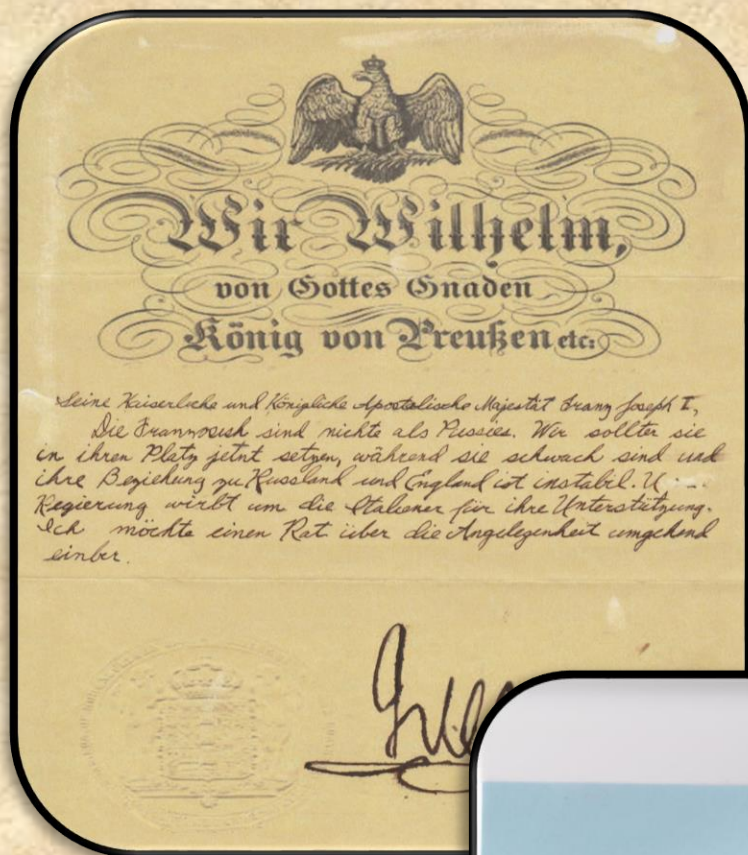 Wir Wilhelm,
von Gottes Gnaden
König von Preußen etc.
Seine Kaiserliche und Königliche Apostolische Majestät Franz Joseph I,
Die Franzosish sind nichte als Pussies. Wir sollter sie
in ihren Platz jetzt setzen, während sie schwach sind und
ihre Beziehung zu Russland und England ist instabil.
Regierung wirbt um die Italiener für ihre Unterstützung.
Ich möchte einen Rat über die Angelegenheit umgehend